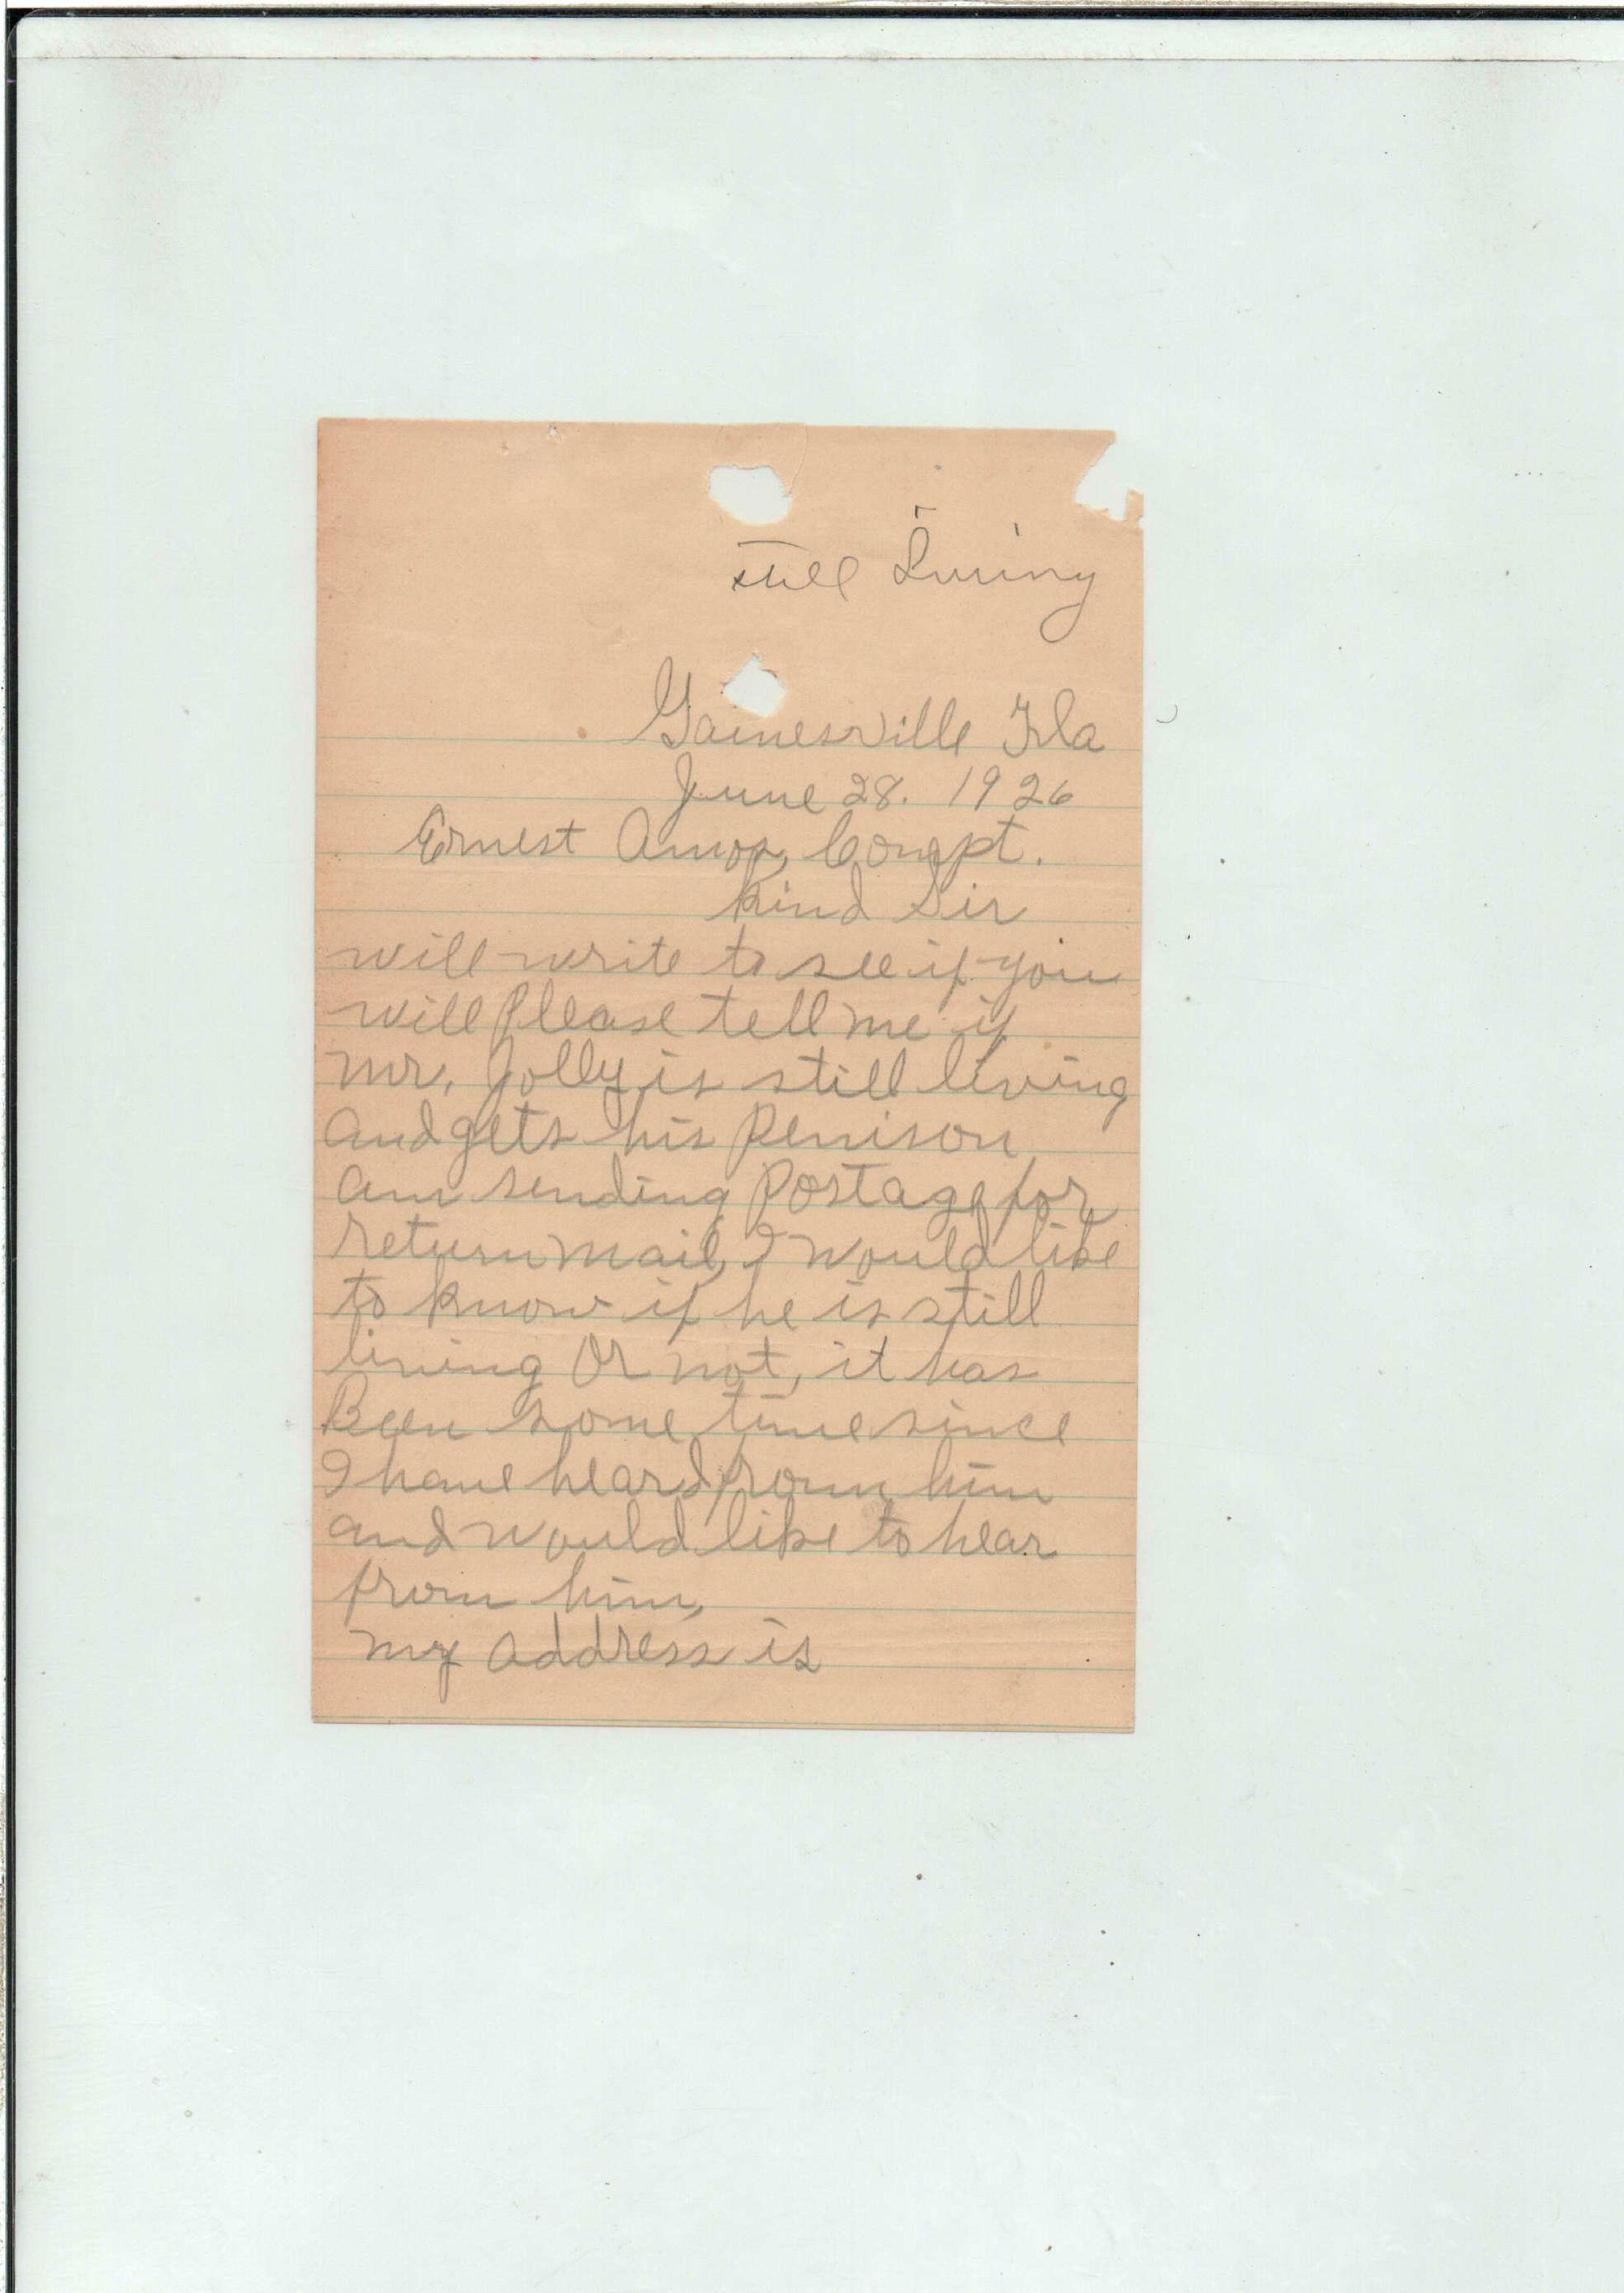 still Living
Gainesville Fla
June 28. 1926
Ernest Amos, Compt.
Kind Sir
will write to see if you
will Please tell me if
mr. Jolly is still living
and gets his Penison
am sending Postage for
return mail, I would like
to know if he is still
living Or not, it has
Been some time since
I have heard from him
and would like to hear
from him,
my address is